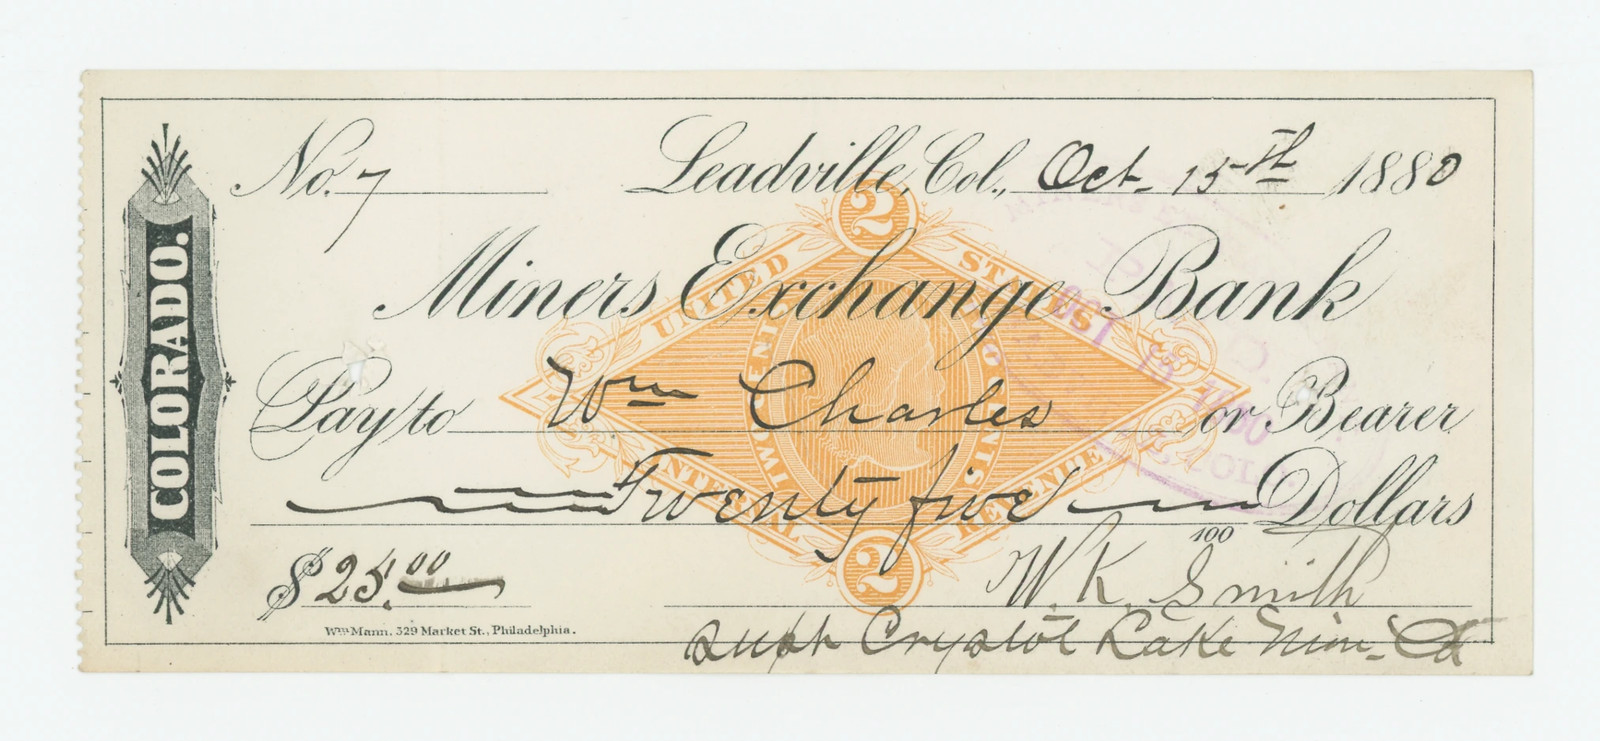 COLORADO.
No. 7 Leadville, Col., Oct. 15th 1880
Miners Exchange Bank
Pay to Wm Charles or Bearer
Twenty five 100 Dollars
$25.00 W. K. Smith
Supt Crystal Lake Min. Co
Wm Mann. 529 Market St., Philadelphia.
2
UNITED STATES
INTERNAL REVENUE
2
MINERS
OCT 15 1880
COLO.